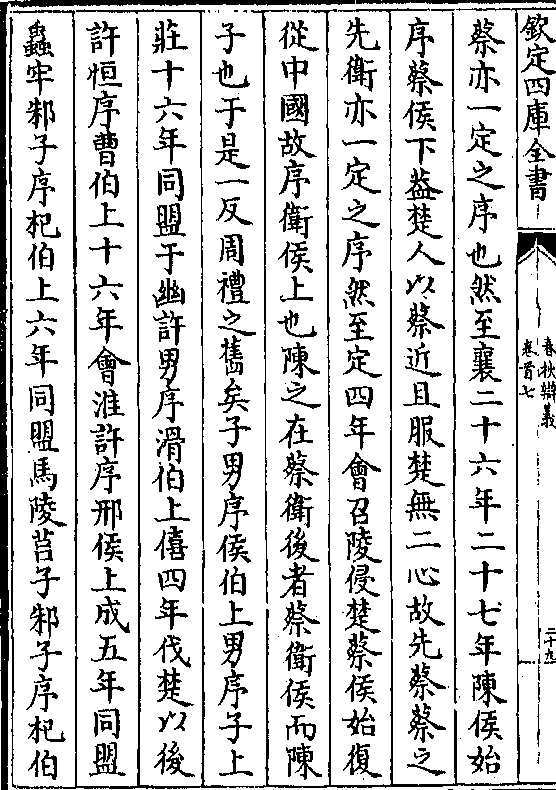 欽定四庫全書
春秋辯義
卷首七
二十九
蔡亦一定之序也然至襄二十六年二十七年陳侯始
序蔡侯下葢楚人以蔡近且服楚無二心故先蔡蔡之
先衛亦一定之序然至定四年會召陵侵楚蔡侯始復
從中國故序衛侯上也陳之在蔡衛後者蔡衛侯而陳
子也于是一反周禮之舊矣子男序侯伯上男序子上
莊十六年同盟于幽許男序滑伯上僖四年伐楚以後
許恒序曹伯上十六年會淮許序邢侯上成五年同盟
蟲牢邾子序杞伯上六年同盟馬陵莒子邾子序杞伯